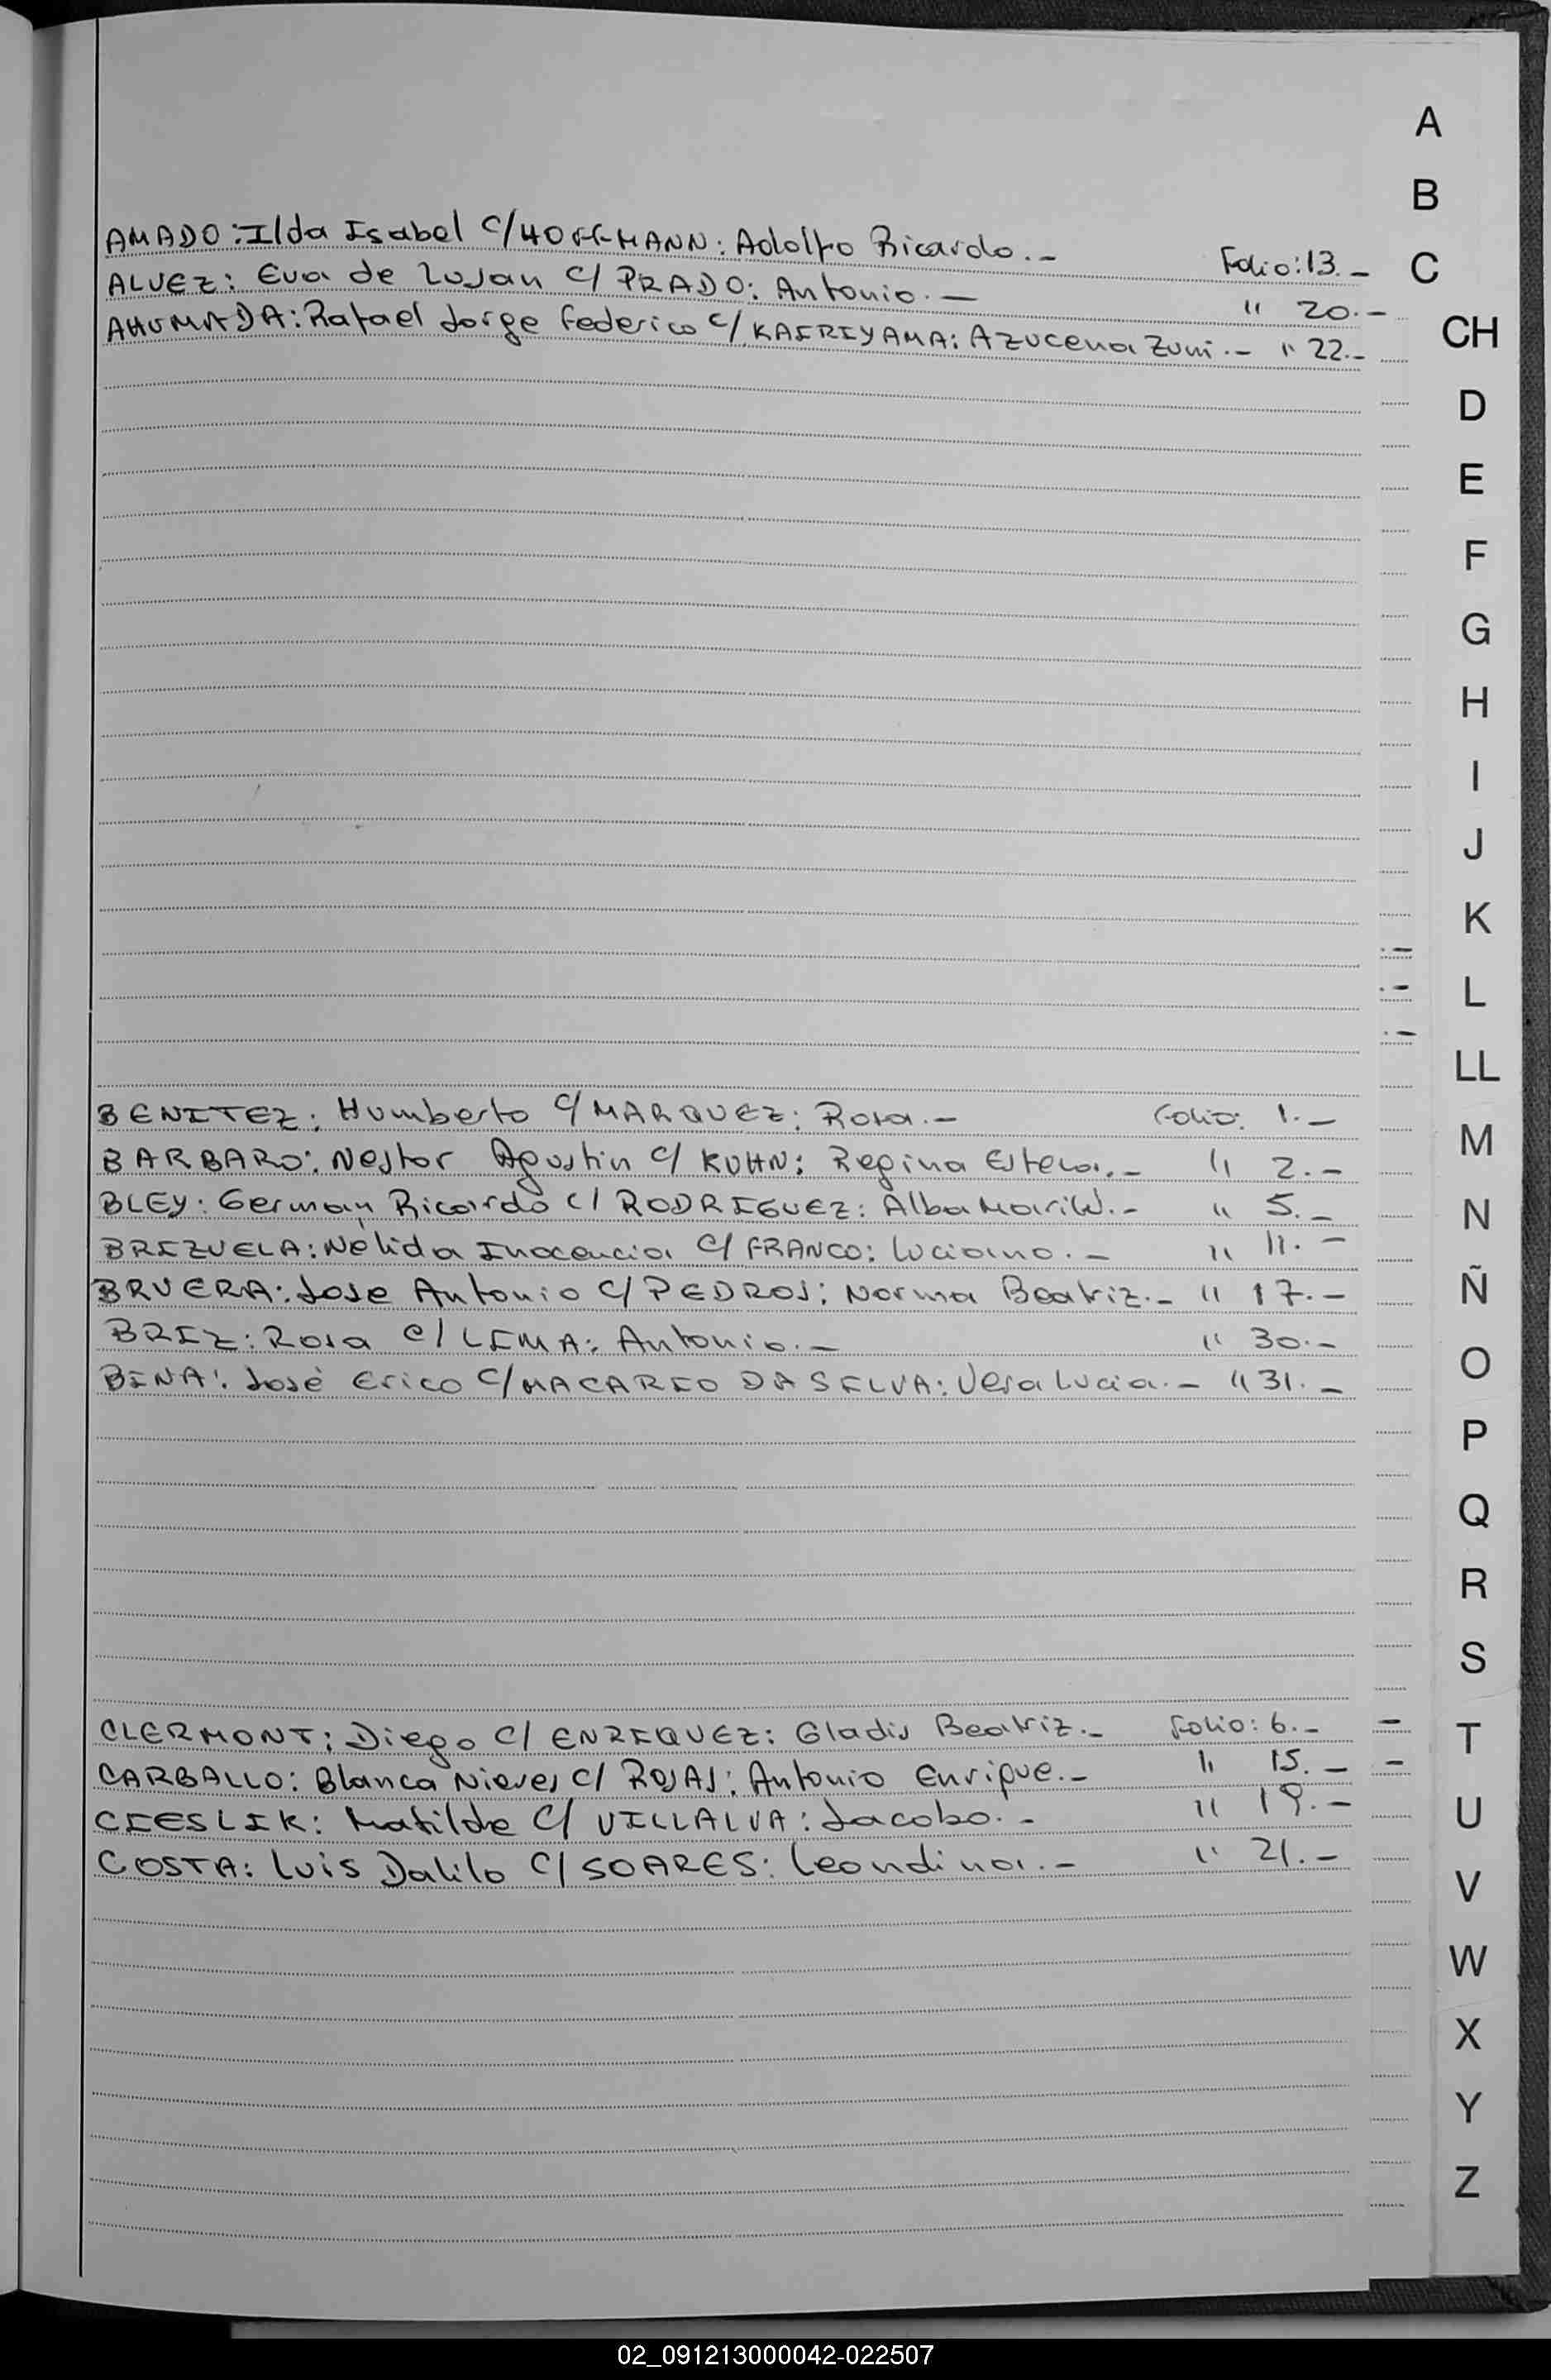 A
B
C
CH
D
E
F
G
H
I
J
K
L
LL
M
N
Ñ
O
P
Q
R
S
T
U
V
W
X
Y
Z
AMADO: Ilda Isabel c/ HOFFMANN: Adolfo Ricardo.- Folio: 13.-
ALVEZ: Eva de Lujan c/ PRADO: Antonio.- " 20.-
AHUMADA: Rafael Jorge Federico c/ KAIRIYAMA: Azucena Zuni.- " 22.-
BENITEZ: Humberto c/ MARQUEZ: Rosa.- Folio: 1.-
BARBARO: Nestor Agustin c/ KUHN: Regina Estela.- " 2.-
BLEY: German Ricardo c/ RODRIGUEZ: Alba Marilú.- " 5.-
BRIZUELA: Nelida Inocencia c/ FRANCO: Luciano.- " 11.-
BRUERA: Jose Antonio c/ PEDROS: Norma Beatriz.- " 17.-
BRIZ: Rosa c/ LIMA: Antonio.- " 30.-
BINA: José Erico c/ MACARIO DA SILVA: Vera Lucia.- " 31.-
CLERMONT: Diego c/ ENRIQUEZ: Gladis Beatriz.- Folio: 6.-
CARBALLO: Blanca Nieves c/ ROJAS: Antonio Enrique.- " 15.-
CIESLIK: Matilde c/ VILLALVA: Jacobo.- " 19.-
COSTA: Luis Dalilo c/ SOARES: Leondina.- " 21.-
02_091213000042-022507